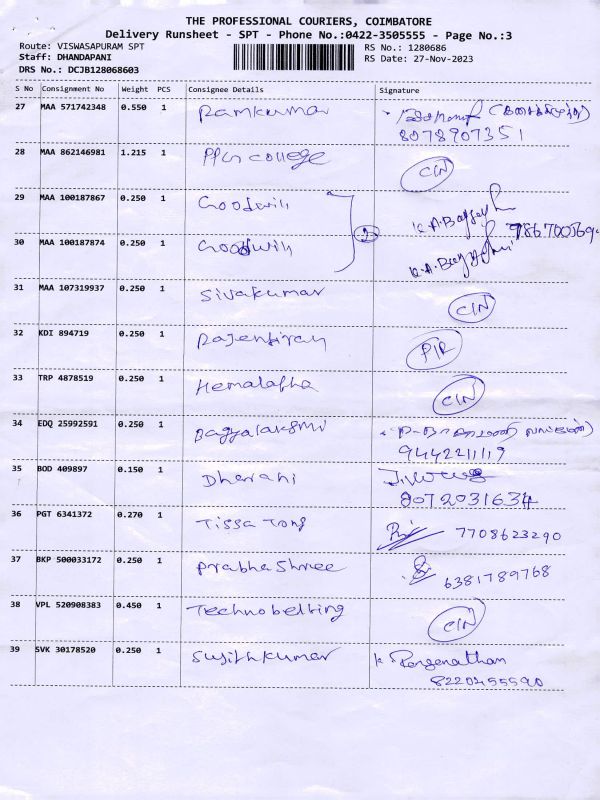 THE PROFESSIONAL COURIERS, COIMBATORE
Delivery Runsheet - SPT - Phone No.:0422-3505555 - Page No.:3
Route: VISWASAPURAM SPT
RS No.: 1280686
Staff: DHANDAPANI
RS Date: 27-Nov-2023
DRS No.: DCJB128068603
S No Consignment No Weight PCS Consignee Details Signature
27 MAA 571742348 0.550 1 Ramkumar
8078907351
28 MAA 862146981 1.215 1 PPG college C/N
29 MAA 100187867 0.250 1 Goodwill
30 MAA 100187874 0.250 1 Goodwill 2
31 MAA 107319937 0.250 1 Sivakumar C/N
32 KDI 894719 0.250 1 Rajendiran P/R
33 TRP 4878519 0.250 1 Hemalatha C/N
34 EDQ 25992591 0.250 1 Bagyalakshmi
9442211119
35 BOD 409897 0.150 1 Dharani
8072031634
36 PGT 6341372 0.270 1 Tissa Tong 7708623290
37 BKP 500033172 0.250 1 Prabha Shree 6381789768
38 VPL 520908383 0.450 1 Technobelting C/N
39 SVK 30178520 0.250 1 Sujithkumar K Rengenathan
8220455590